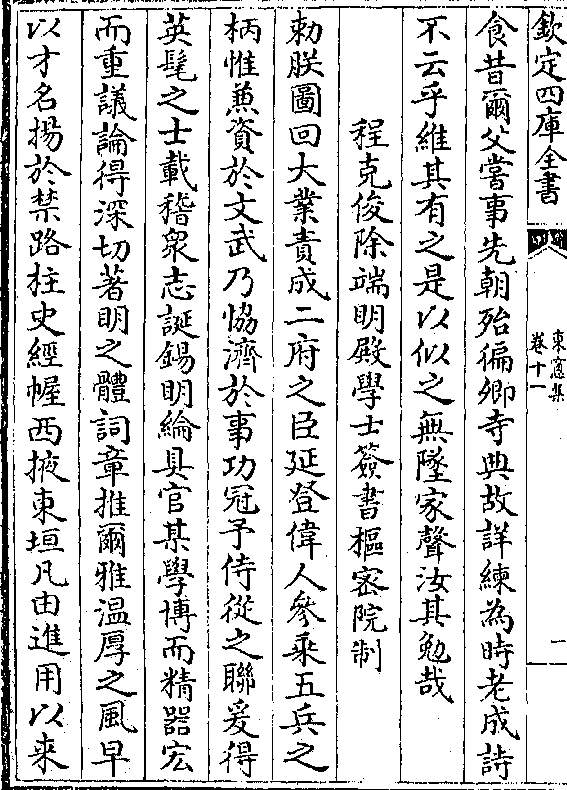 欽定四庫全書
東窻集
卷十一
一
食昔爾父嘗事先朝殆徧卿寺典故詳練為時老成詩
不云乎維其有之是以似之無墜家聲汝其勉哉
程克俊除端明殿學士簽書樞密院制
勅朕圖回大業責成二府之臣延登偉人參乘五兵之
柄惟兼資於文武乃恊濟於事功冠予侍從之聯爰得
英髦之士載稽衆志誕錫明綸具官某學博而精器宏
而重議論得深切著明之體詞章推爾雅温厚之風早
以才名揚於禁路柱史經幄西掖東垣凡由進用以来